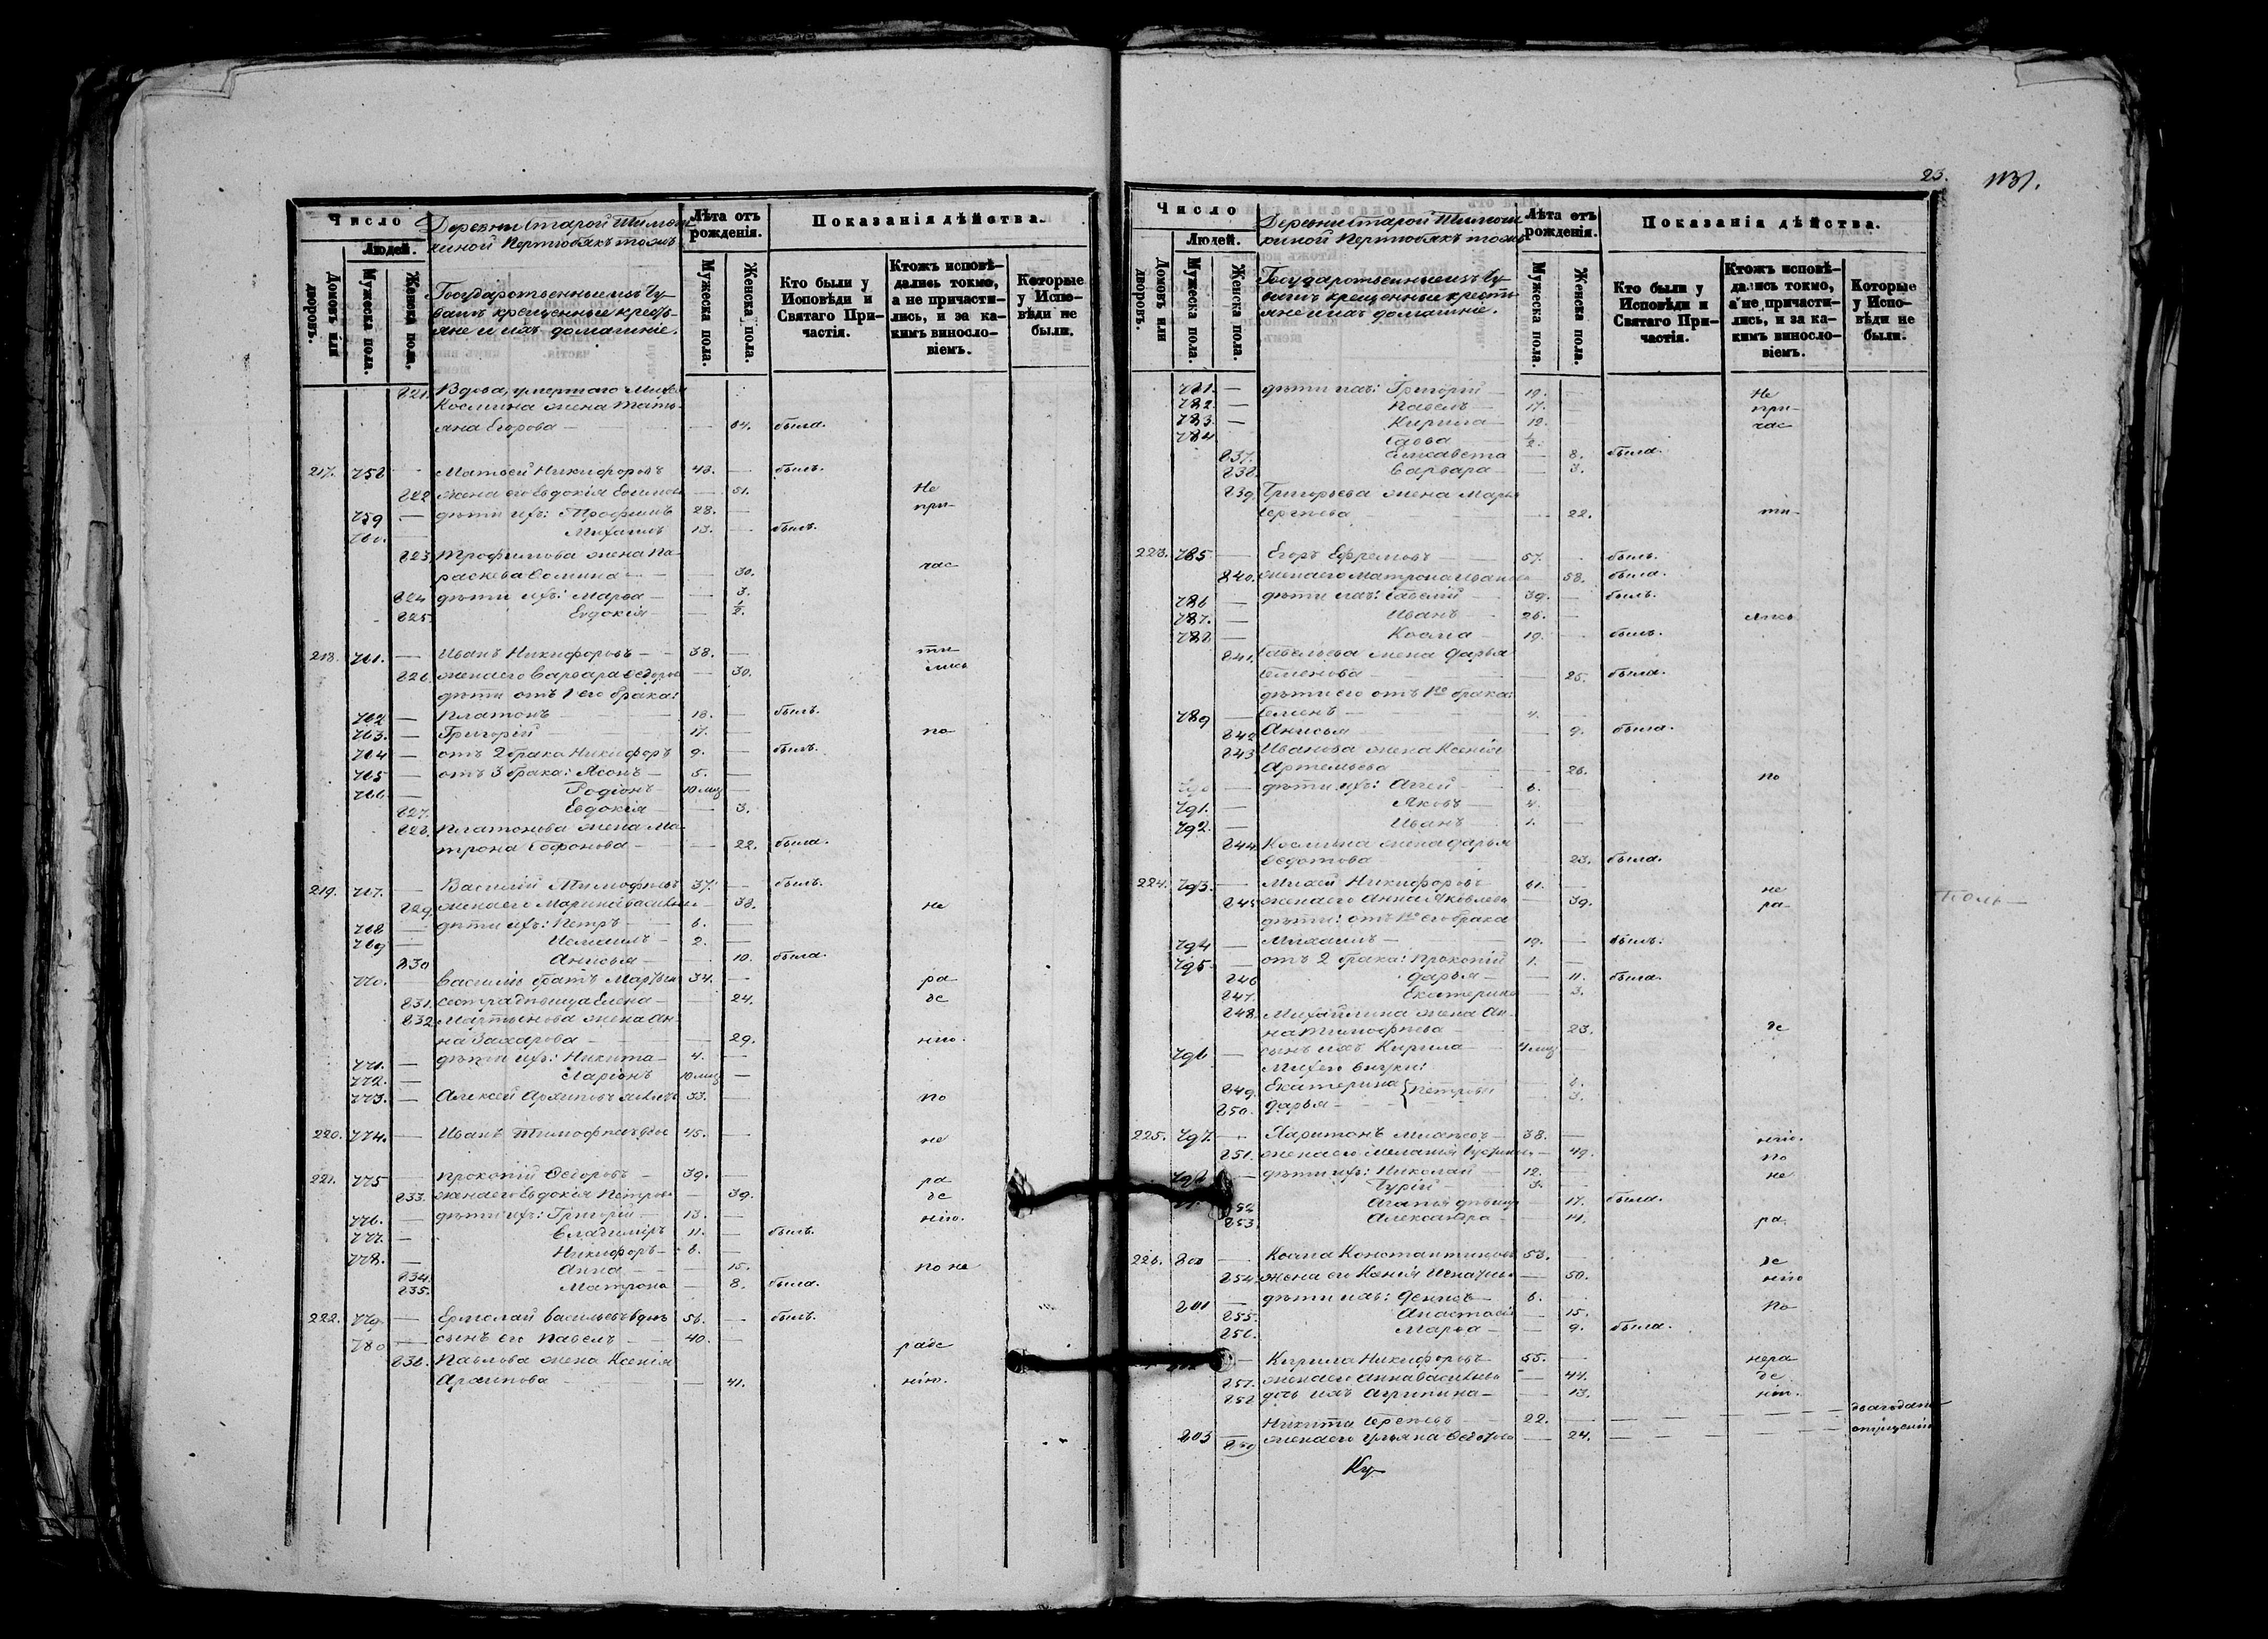 Число
Людей.
Домовъ или дворовъ.
Мужеска пола.
Женска пола.
Деревни Старой Шимку-
скиной Пертюбякъ тожъ
Государственные изъ Чу-
вашъ крещенные кресть-
яне и ихъ домашніе.
Лѣта отъ рожденія.
Мужеска пола.
Женска пола.
Показанія дѣйства.
Кто были у Исповѣди и Святаго При-частія.
Ктожъ исповѣ-дались токмо, а не причасти-лись, и за ка-кимъ винословіемъ.
Которые у Испо-вѣди не были.
821. Вдова, умершаго
Космина жена Тать-
яна Егорова — 64. была.
217. 758 Матвей Никифоровъ 43. — былъ.
822 жена его Евдокія — 51. Не
759 — дѣти ихъ: Трофимъ 28. — при-
760. — Михаилъ 13. — былъ.
823. Трофимова жена Па-
раскева Фомина — 30. час
824 дѣти ихъ: Марѳа — 3.
825. Евдокія — ½.
218. 761. — Иванъ Никифоровъ — 38. — ти
826. жена его Варвара Ѳедоро — 30. лись
дѣти отъ 1 его брака:
762 — Платонъ — 18. — былъ.
763. — Григорій — 17. — по
764 — отъ 2 брака Никифоръ 9. — былъ.
765 — отъ 3 брака: Ясонъ — 5. —
766. — Родіонъ — 10 мц —
827. Евдокія — 3.
828. Платонова жена Ма-
трона Софонова — 22. была.
219. 767. — Василій Тимофеевъ 37. — былъ.
829. жена его Марина Василь — 38. не
768 — дѣти ихъ: Петръ — 6. —
769 — Исмаилъ — 2. —
830 Анисья — 10. была.
770. — Василья братъ Мартын 34. — ра
831. сестра дѣвица Елена — 24. де
832 Мартынова жена Ан-
на Захарова — 29. нію.
771. — дѣти ихъ: Никита — 4. —
772. — Ларіонъ 10 мц —
773. — Алексей Архиповъ 33. — по
220. 774. — Иванъ Тимофеевъ 45. — не
221. 775 — Прокопій Ѳедоровъ — 39. — ра
833. жена его Евдокія Петров — 39. де
776. — дѣти ихъ: Григорій — 13. — нію.
777. — Владиміръ 11. — былъ.
778. — Никифоръ — 6. —
834. Анна — 15. по не
835. Матрона — 8. была.
222. 779. — Ермолай Васильевъ вдов 56. — былъ.
780 — сынъ его Павелъ — 40. — раде
836. Павлова жена Ксенія
Архипова — 41. нію.
23. 1131.
Число
Людей.
Домовъ или дворовъ.
Мужеска пола.
Женска пола.
Деревни Старой Шимку-
скиной Пертюбякъ тожъ
Государственные изъ Чу-
вашъ крещенные кресть-
яне и ихъ домашніе.
Лѣта отъ рожденія.
Мужеска пола.
Женска пола.
Показанія дѣйства.
Кто были у Исповѣди и Святаго При-частія.
Ктожъ исповѣ-дались токмо, а не причасти-лись, и за ка-кимъ винословіемъ.
Которые у Испо-вѣди не были.
781. — дѣти ихъ: Григорій — 19. — Не
782. — Павелъ — 17. — при-
783. — Кирила — 12. — час
784 Савва ½.
837. Елисавета — 8. была.
838. Варвара — 3.
839. Григорьева жена Марья
Сергеева — 22. ти-
223. 785 — Егоръ Ефремовъ — 57. — былъ.
840. жена его Матрона Иванов — 58. была.
786 — дѣти ихъ: Савелій — 39. — былъ.
787. — Иванъ — 26. — лись
788 — Косма — 19. — былъ.
841. Савельева жена Дарья
Семенова — 25. была.
дѣти его отъ 1го брака:
789 — Семенъ — 4. —
842 Анисья — 9. была.
843 Иванова жена Ксенія
Артемьева — 26. по
790 — дѣти ихъ: Аггей — 6. —
791. — Яковъ — 4. —
792. — Иванъ — 1. —
844. Космина жена Дарья
Ѳедотова — 23. была.
224. 793. — Михей Никифоровъ 61. — не
845 жена его Анна Яковлева — 39. ра-
дѣти: отъ 1го его брака
794 — Михаилъ — 19. — былъ.
795. — отъ 2 брака: Прокопій 1. —
846 Дарья — 11. была.
847. Екатерина — 3.
848. Михайлина жена Ан-
на Тимофеева — 23. де
796 — сынъ ихъ Кирила — 4 мц —
Михея внуки:
849. Екатерина } Петровы — 6.
850. Дарья — 3.
225. 797. — Харитонъ Михеевъ — 38. — нію.
851. жена его Меланія — 49. по
798 — дѣти ихъ: Николай — 12. — не
Гурій — 3. —
852 Агафья дѣвица — 17. была.
853. Александра — 14. ра
226. 800 — Косма Константиновъ 53. — де
854. жена его Ксенія Игнатьев — 50. нію
801 — дѣти ихъ: Денисъ — 6. по
855. Анастасія — 15.
856. Марѳа — 9. была.
— Кирила Никифоровъ — 55. — нера
857. жена его Анна Васильева — 44. де
858 дочь ихъ Агрипина — 13. нію.
Никита Сергеевъ — 22. —
803 859 жена его Ульяна Ѳедорова — 24. —
Ку-